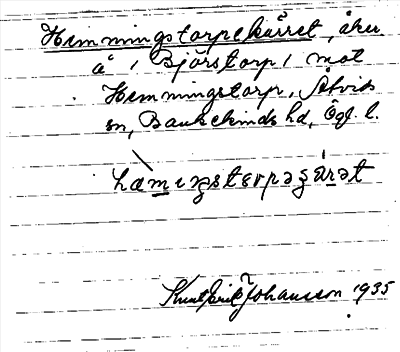 Hemmingstorpekärret, åker
å / Björstorp / mot
Hemmingstorp, Åtvids
sn, Bankekinds hd, Ögl. l.
hæmɩŋstɐrpəʂärət
Knut Erik Johansson 1935